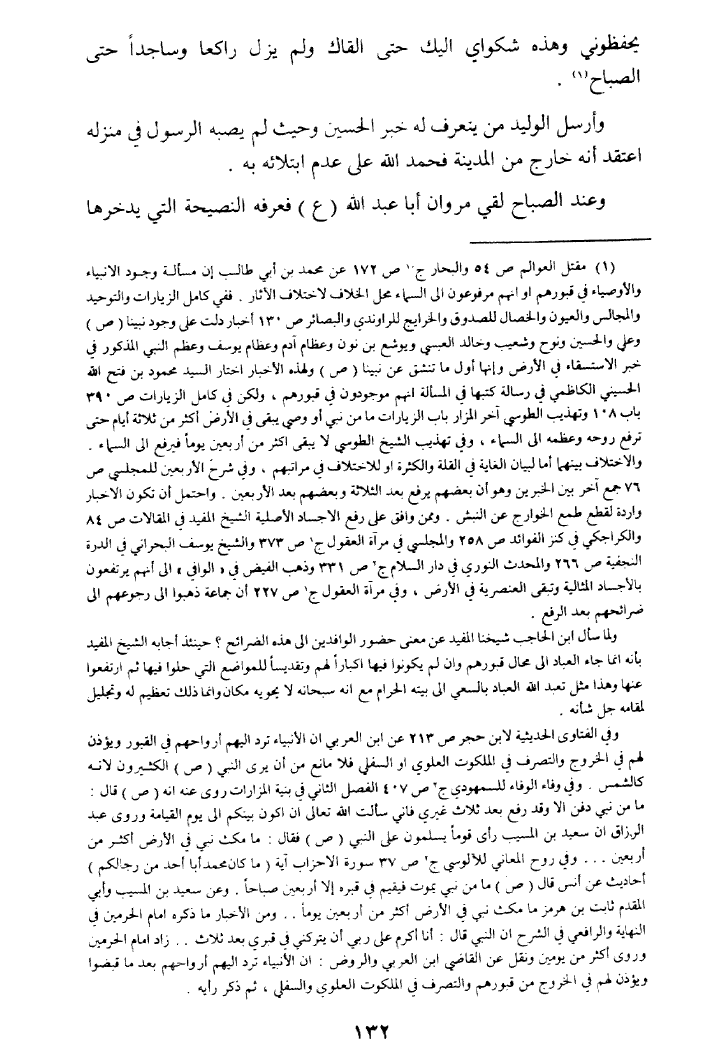 يحفظوني وهذه شكواي اليك حتى القاك ولم يزل راكعا وساجداً حتى
الصباح(١) .
وأرسل الوليد من يتعرف له خبر الحسين وحيث لم يصبه الرسول في منزله
اعتقد أنه خارج من المدينة فحمد الله على عدم ابتلائه به .
وعند الصباح لقي مروان أبا عبد الله ( ع ) فعرفه النصيحة التي يدخرها
(١) مقتل العوالم ص ٥٤ والبحار ج١٠ ص ١٧٢ عن محمد بن أبي طالب إن مسألة وجود الانبياء
والأوصياء في قبورهم او انهم مرفوعون الى السماء محل الخلاف لاختلاف الآثار . ففي كامل الزيارات والتوحيد
والمجالس والعيون والخصال للصدوق والخرايج للراوندي والبصائر ص ١٣٠ أخبار دلت على وجود نبينا ( ص )
وعلي والحسين ونوح وشعيب وخالد العبسي ويوشع بن نون وعظام آدم وعظام يوسف وعظم النبي المذكور في
خبر الاستسقاء في الأرض وإنها أول ما تنشق عن نبينا ( ص ) ولهذه الأخبار اختار السيد محمود بن فتح الله
الحسيني الكاظمي في رسالة كتبها في المسألة انهم موجودون في قبورهم ، ولكن في كامل الزيارات ص ٣٩٠
باب ١٠٨ وتهذيب الطوسي آخر المزار باب الزيارات ما من نبي أو وصي يبقى في الأرض أكثر من ثلاثة أيام حتى
ترفع روحه وعظمه الى السماء ، وفي تهذيب الشيخ الطوسي لا يبقى اكثر من أربعين يوماً فيرفع الى السماء .
والاختلاف بينهما أما لبيان الغاية في القلة والكثرة او للاختلاف في مراتبهم ، وفي شرح الأربعين للمجلسي ص
٧٦ جمع آخر بين الخبرين وهو أن بعضهم يرفع بعد الثلاثة وبعضهم بعد الأربعين . واحتمل أن تكون الاخبار
واردة لقطع طمع الخوارج عن النبش . وممن وافق على رفع الاجساد الأصلية الشيخ المفيد في المقالات ص ٨٤
والكراجكي في كنز الفوائد ص ٢٥٨ والمجلسي في مرآة العقول ج١ ص ٣٧٣ والشيخ يوسف البحراني في الدرة
النجفية ص ٢٦٦ والمحدث النوري في دار السلام ج٢ ص ٣٣١ وذهب الفيض في « الوافي » الى أنهم يرتفعون
بالأجساد المثالية وتبقى العنصرية في الأرض ، وفي مرآة العقول ج١ ص ٢٢٧ أن جماعة ذهبوا الى رجوعهم الى
ضرائحهم بعد الرفع .
ولما سأل ابن الحاجب شيخنا المفيد عن معنى حضور الوافدين الى هذه الضرائح ؟ حينئذ أجابه الشيخ المفيد
بأنه انما جاء العباد الى محال قبورهم وان لم يكونوا فيها اكباراً لهم وتقديساً للمواضع التي حلوا فيها ثم ارتفعوا
عنها وهذا مثل تعبد الله العباد بالسعي الى بيته الحرام مع انه سبحانه لا يحويه مكان وانما ذلك تعظيم له وتجليل
لمقامه جل شأنه .
وفي الفتاوى الحديثية لابن حجر ص ٢١٣ عن ابن العربي ان الأنبياء ترد اليهم أرواحهم في القبور ويؤذن
لهم في الخروج والتصرف في الملكوت العلوي او السفلي فلا مانع من أن يرى النبي ( ص ) الكثيرون لانه
كالشمس . وفي وفاء الوفاء للسمهودي ج٢ ص ٤٠٧ الفصل الثاني في بنية المزارات روى عنه انه ( ص ) قال :
ما من نبي دفن الا وقد رفع بعد ثلاث غيري فاني سألت الله تعالى ان اكون بينكم الى يوم القيامة وروى عبد
الرزاق ان سعيد بن المسيب رأى قوماً يسلمون على النبي ( ص ) فقال : ما مكث نبي في الأرض أكثر من
أربعين ... وفي روح المعاني للآلوسي ج٢ ص ٣٧ سورة الاحزاب آية ( ما كان محمد أبا أحد من رجالكم )
أحاديث عن أنس قال ( ص ) ما من نبي يموت فيقيم في قبره إلا أربعين صباحاً . وعن سعيد بن المسيب وأبي
المقدم ثابت بن هرمز ما مكث نبي في الأرض أكثر من أربعين يوماً .. ومن الأخبار ما ذكره امام الحرمين في
النهاية والرافعي في الشرح ان النبي قال : أنا أكرم على ربي أن يتركني في قبري بعد ثلاث .. زاد امام الحرمين
وروى أكثر من يومين ونقل عن القاضي ابن العربي والروض : ان الأنبياء ترد اليهم أرواحهم بعد ما قبضوا
ويؤذن لهم في الخروج من قبورهم والتصرف في الملكوت العلوي والسفلي ، ثم ذكر رأيه .
١٣٢